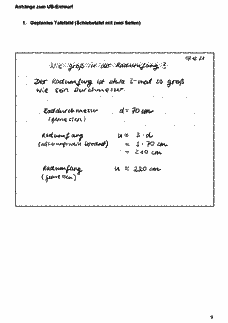 Anhänge zum UB-Entwurf
1. Geplantes Tafelbild (Schiebetafel mit zwei Seiten)
Wie groß ist der Radumfang?
Der Radumfang ist etwa 3-mal so groß
wie sein Durchmesser.
Raddurchmesser d = 70 cm
(gemessen)
Radumfang u ≈ 3 · d
≈ 3 · 70 cm
= 210 cm
Radumfang u ≈ 220 cm
(gemessen)